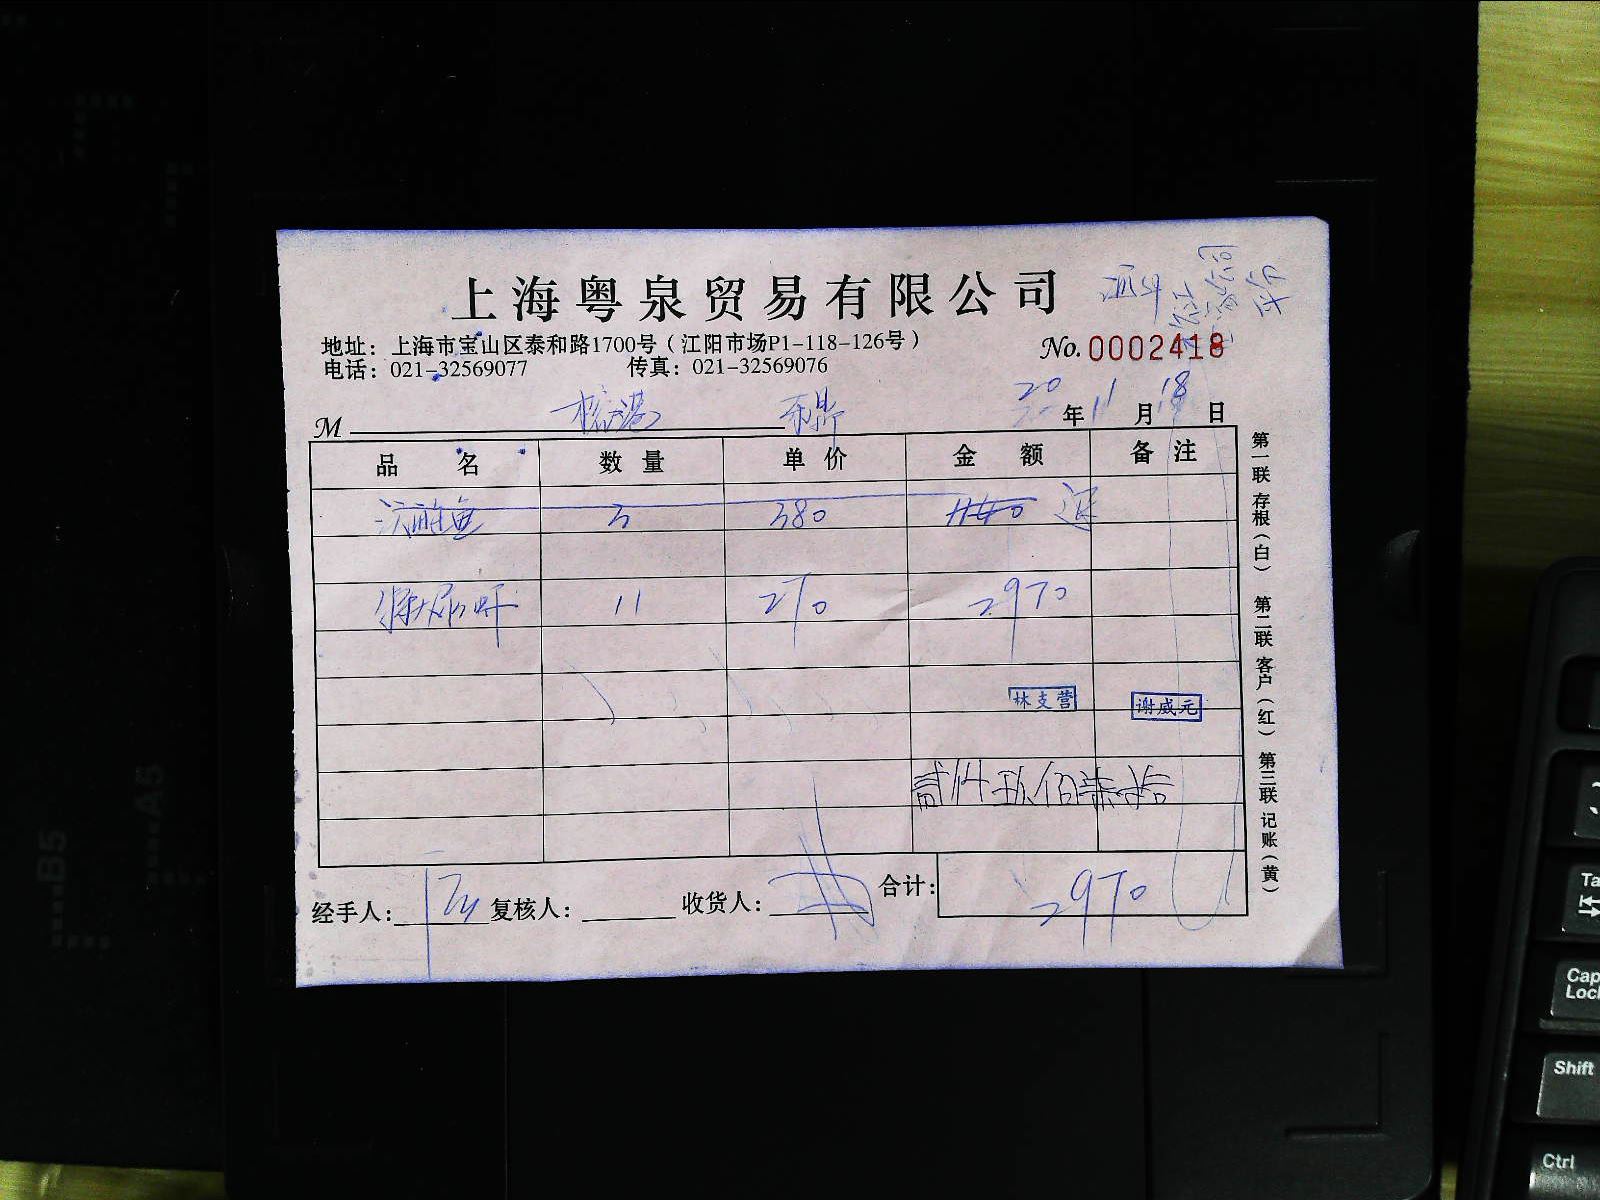 上海粤泉贸易有限公司
地址：上海市宝山区泰和路1700号（江阳市场P1-118-126号）
No. 0002418
电话：021-32569077 传真：021-32569076
M 20 年 11 月 18 日
品 名 数 量 单 价 金 额 备 注
380 1140 退
11 270 2970
林支营 谢威元
贰仟玖佰柒拾
经手人： 复核人： 收货人： 合计： 2970
第一联 存根（白） 第二联 客户（红） 第三联 记账（黄）
B5
A5
Cap
Lock
Shift
Ctrl